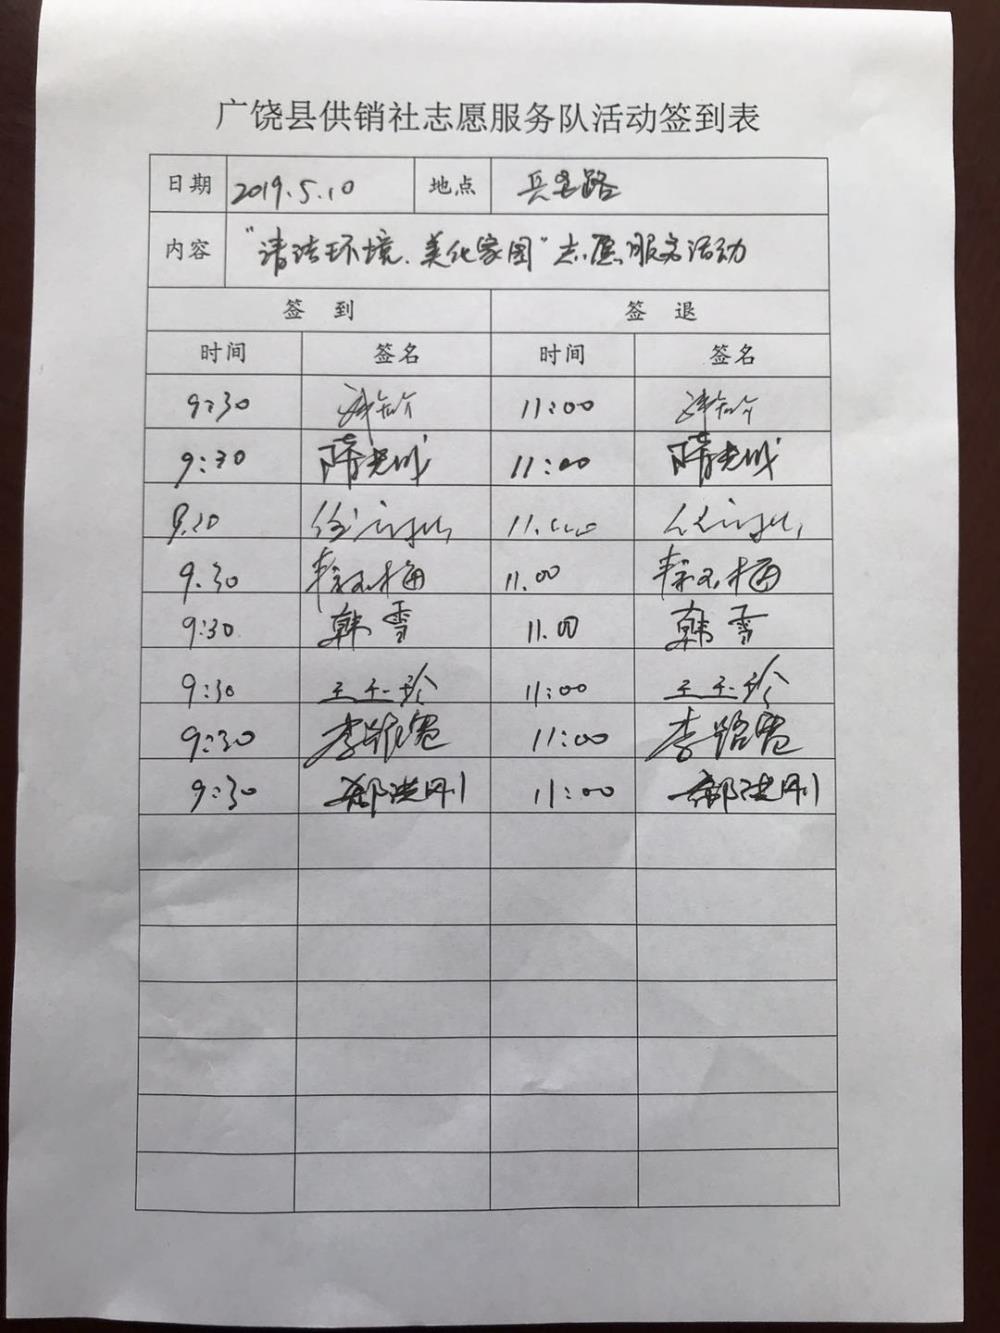 广饶县供销社志愿服务队活动签到表
日期 2019.5.10 地点 兵圣路
内容 “清洁环境、美化家园”志愿服务活动
签 到 签 退
时间 签名 时间 签名
9:30 11:00
9:30 隋光成 11:00 隋光成
9.30 11.00
9.30 11.00
9:30 韩雪 11.00 韩雪
9:30 王玉珍 11:00 王玉珍
9:30 11:00
9:30 郝洪刚 11:00 郝洪刚